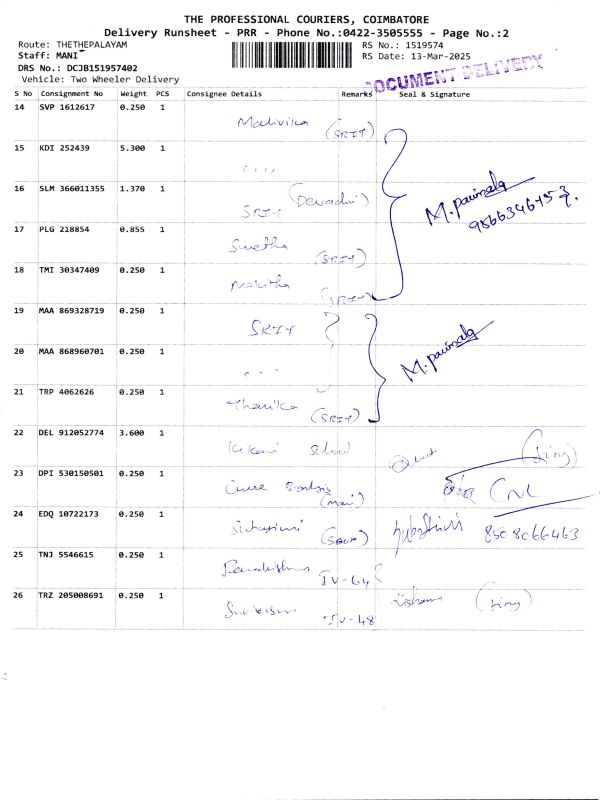 THE PROFESSIONAL COURIERS, COIMBATORE
Delivery Runsheet - PRR - Phone No.:0422-3505555 - Page No.:2
Route: THETHEPALAYAM RS No.: 1519574
Staff: MANI RS Date: 13-Mar-2025
DRS No.: DCJB151957402
DOCUMENT DELIVERY
Vehicle: Two Wheeler Delivery
S No Consignment No Weight PCS Consignee Details Remarks Seal & Signature
14 SVP 1612617 0.250 1
Malivika (SRIT)
15 KDI 252439 5.300 1
16 SLM 366011355 1.370 1
SRIT
M. Parimala
17 PLG 218854 0.855 1
Swetha (SRIT)
18 TMI 30347409 0.250 1
(SRIT)
19 MAA 869328719 0.250 1
SRIT
20 MAA 868960701 0.250 1
M. Parimala
21 TRP 4062626 0.250 1
Tharika (SRIT)
22 DEL 912052774 3.600 1
23 DPI 530150501 0.250 1
24 EDQ 10722173 0.250 1
8508066463
25 TNJ 5546615 0.250 1
IV-64
26 TRZ 205008691 0.250 1
IV-48